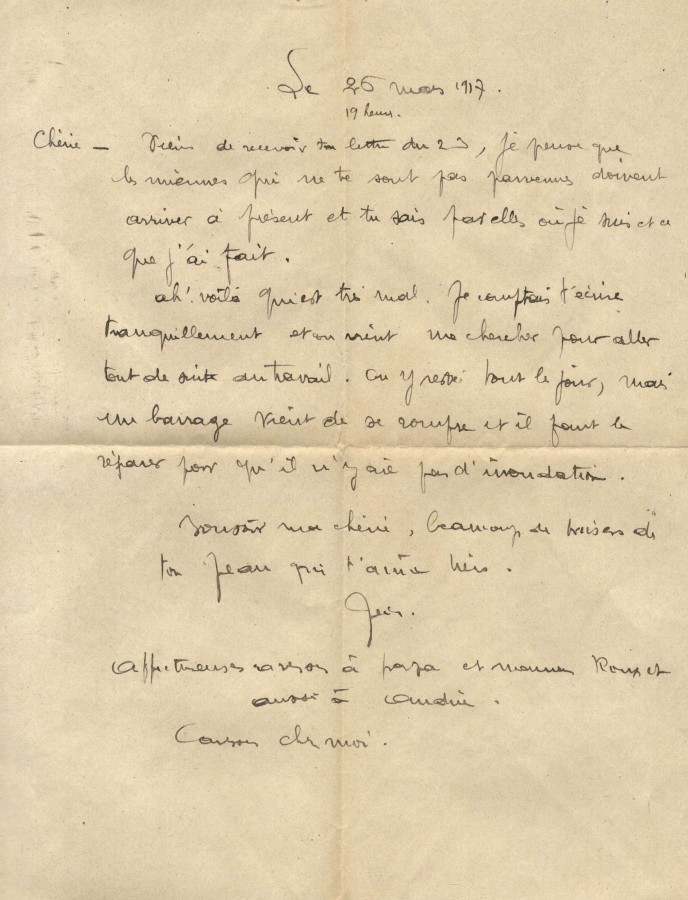 Le 26 mars 1917.
19 heures.
Chérie — Viens de recevoir ta lettre du 23, je pense que
les miennes qui ne te sont pas parvenues doivent
arriver à présent et tu sais par elles où je suis et ce
que j'ai fait.
ah! voilà qui est très mal. Je comptais t'écrire
tranquillement et on vient me chercher pour aller
tout de suite au travail. On y reste tout le jour, mais
un barrage vient de se rompre et il faut le
réparer pour qu'il n'y aie pas d'inondation.
Bonsoir ma chérie, beaucoup de baisers de
ton Jean qui t'aime
Jean.
Affectueuses caresses à papa et maman Roux et
aussi à
Caresses chez moi.